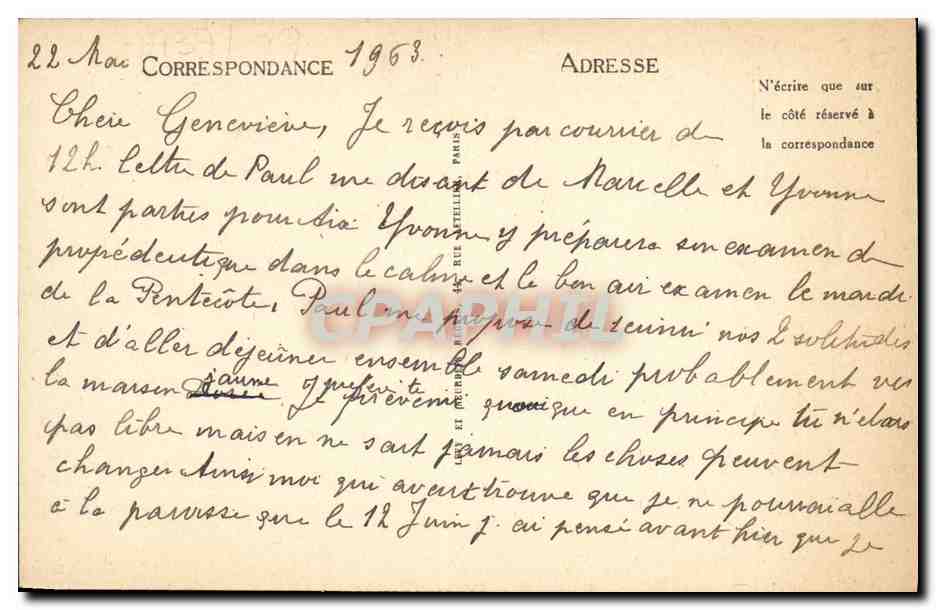 22 Mai CORRESPONDANCE 1963.
ADRESSE
N'écrire que sur
le côté réservé à
la correspondance
Cheie Geneviève, Je reçois par courrier de
12h. lettre de Paul me disant de Marcelle et Yvonne
sont parties pour Aix Yvonne y préparera son examen de
propédeutique dans le calme et le bon air examen le mardi
de la Pentecôte, Paul me propose de réunir nos 2 solitudes
et d'aller déjeûner ensemble samedi probablement vers
la maison jaune Je préviens quoique en principe tu n'étais
pas libre mais on ne sait jamais les choses peuvent
changer Ainsi moi qui avait trouve que je ne pourrai alle
à la paroisse que le 12 Juin j'ai pensé avant hier que je
LEVY ET NEURDEIN RÉUNIS, 44, RUE LETELLIER, PARIS
CPAPHIL